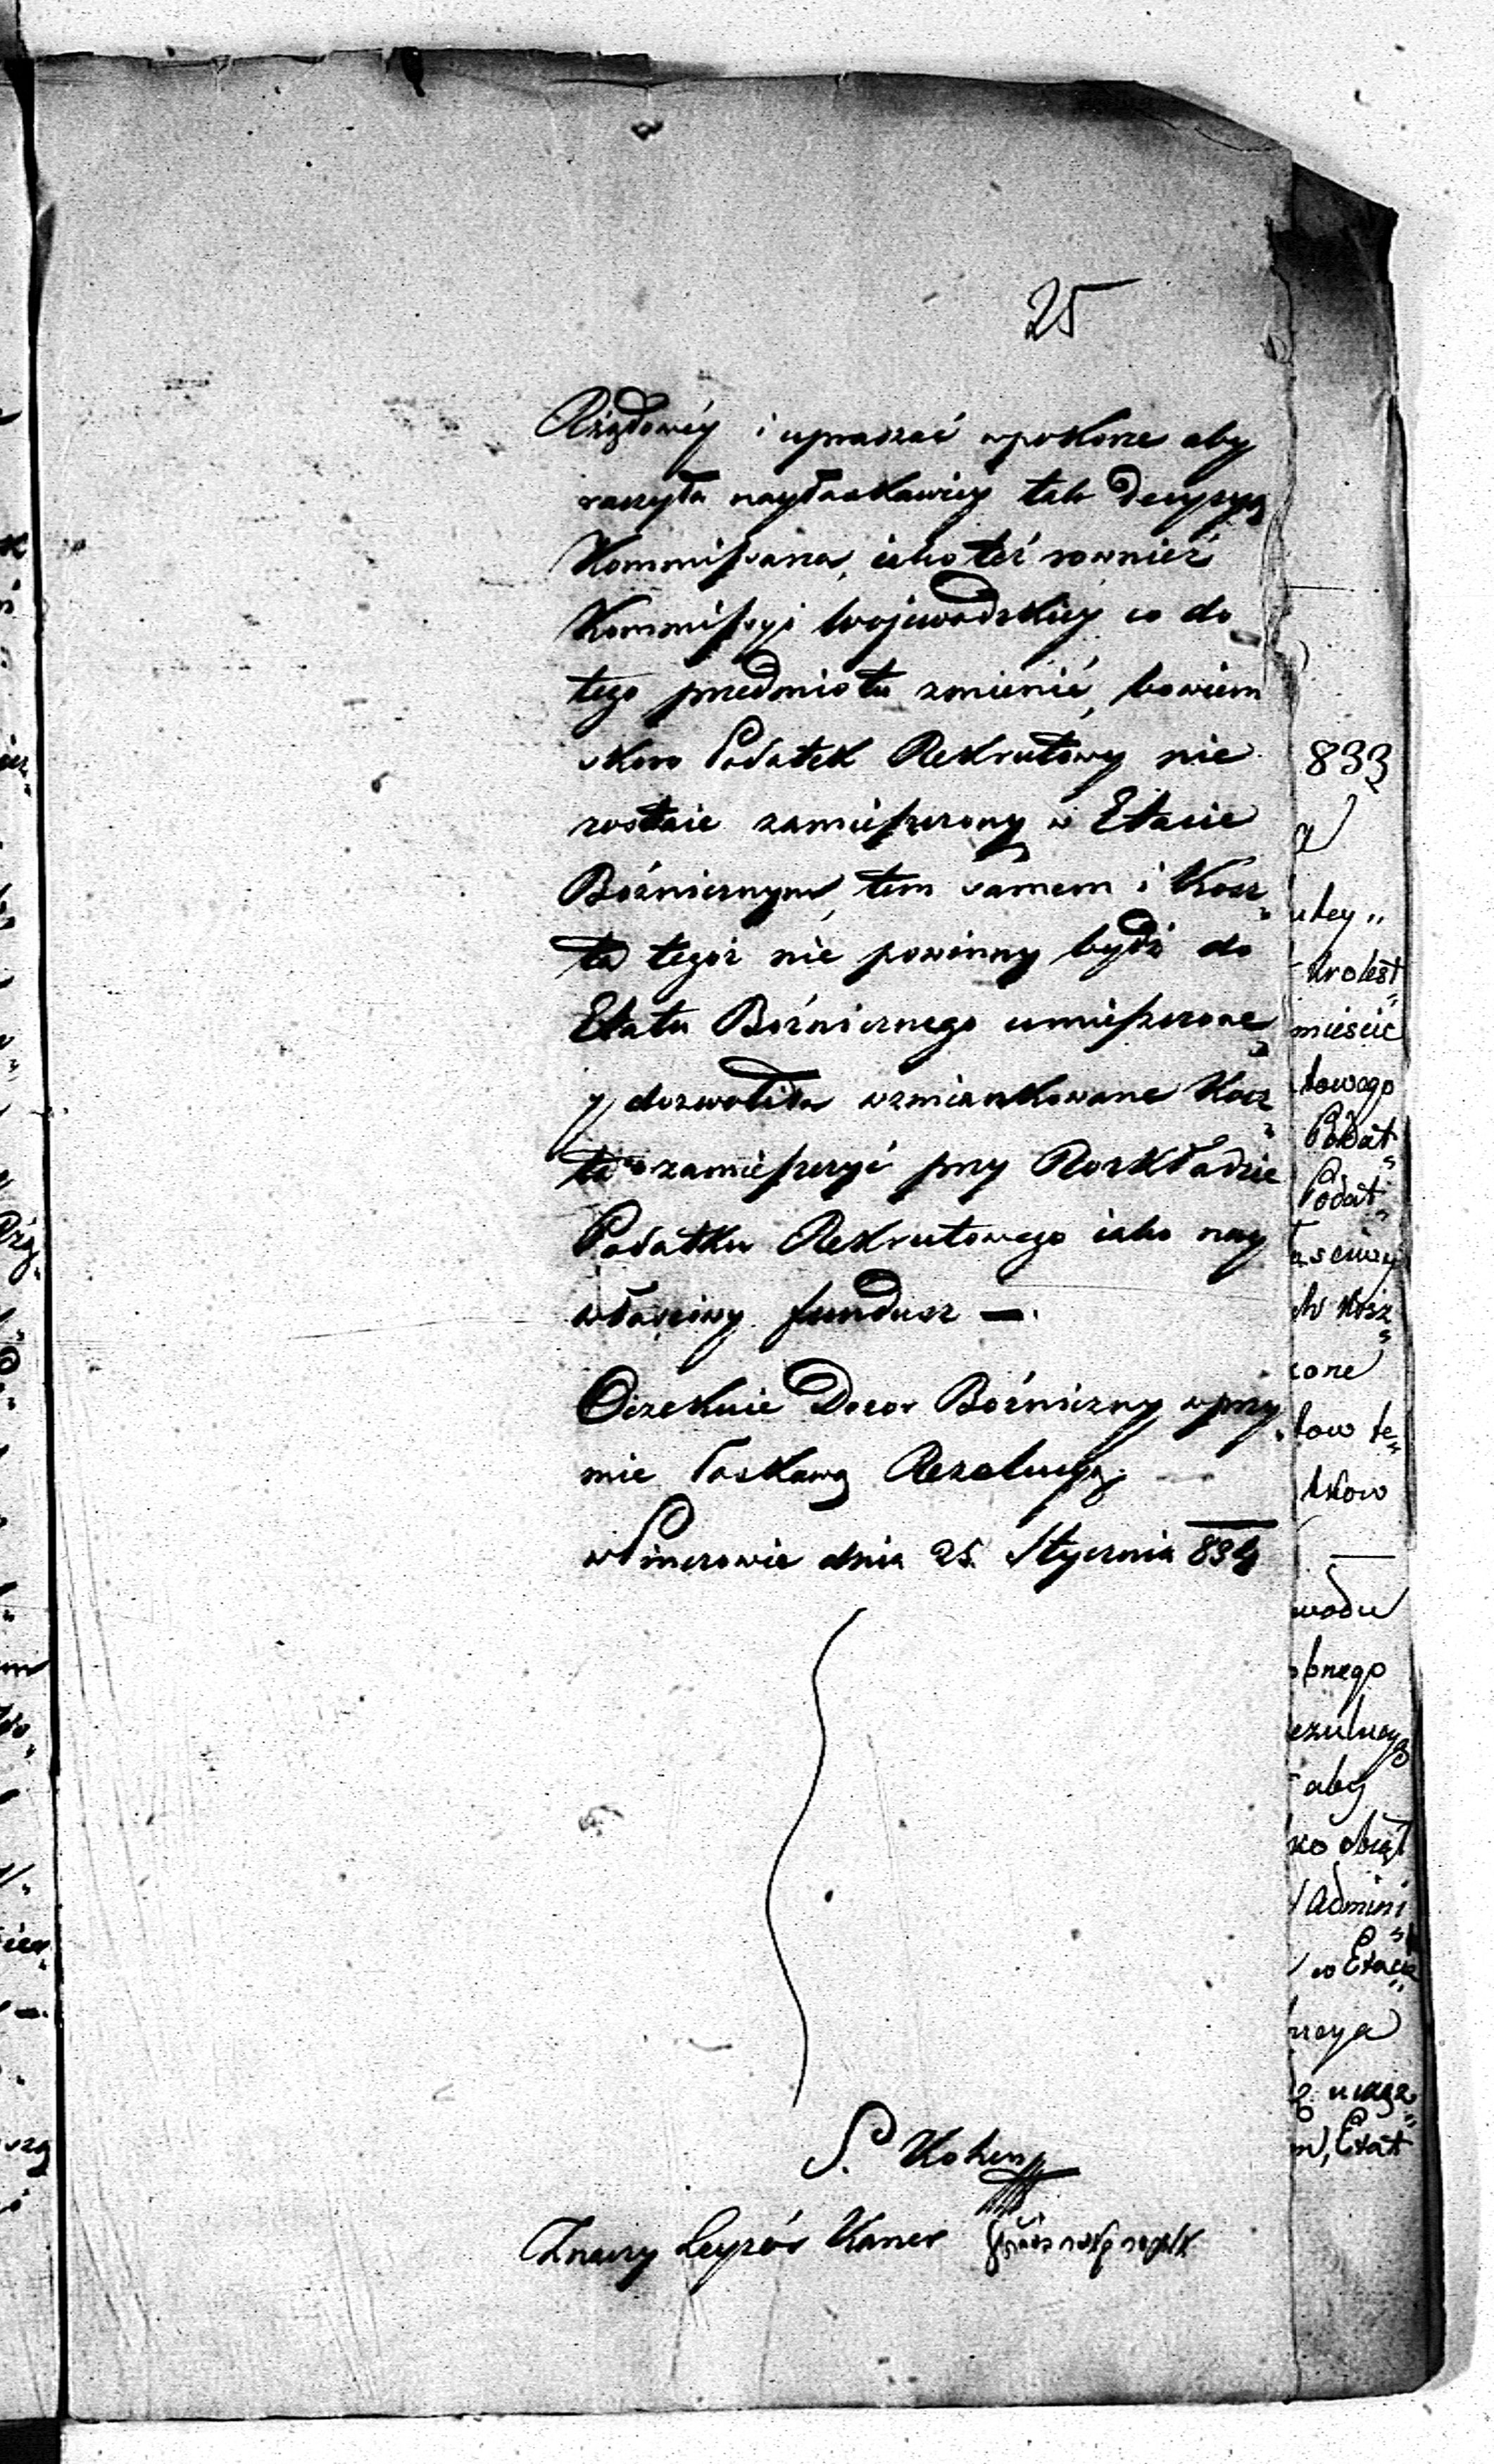 25
Rządowéy i upraszać wpokorze aby
raczyła nayłaskawiéy tak decyzyą
Kommissarza, iako też rownież
Kommissyi Wojewodzkiéy co do
tego przedmiotu zmienić, bowiem
skoro Podatek Rekrutowy nie
zostaie zamieszczony w Etacie
Bóżnicznym, tem samem i Kosz„
ta tegoż nie powinny bydź do
Etatu Bóżnicznego umieszczone„
y dozwoliła wzmiankowane Kosz„
ta zamieszczyć przy Rozkładzie
Podatku Rekrutowego iako nay
właściwy fundusz —.
Oczekuie Dozor Bóżniczny wprzy„
mie łaskawą Rezolucyą.
w Pinczowie dnia 25. Stycznia 834
S. Kohen
Znaczy Leyzór Kaner
833
a
utey „
Krolest„
mieście
towego
Podat„
Podat„
aściwy
ch Kosz„
zone
tow te„
tkow
wodu
bnego
ezulucyą
aby
ko obiąt
Admini„
w Etacie„
ą uwagę„
m, Etat